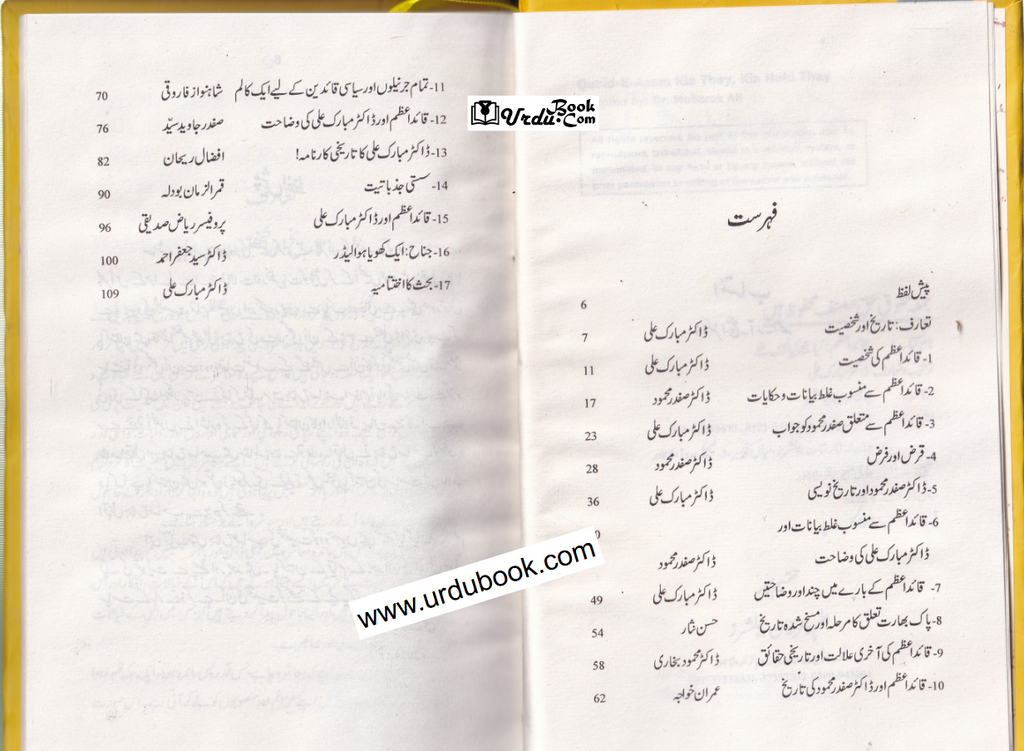 فہرست
پیش لفظ 6
تعارف: تاریخ اور شخصیت ڈاکٹر مبارک علی 7
1- قائداعظم کی شخصیت ڈاکٹر مبارک علی 11
2- قائداعظم سے منسوب غلط بیانات و حکایات ڈاکٹر صفدر محمود 17
3- قائداعظم سے متعلق صفدر محمود کو جواب ڈاکٹر مبارک علی 23
4- قرض اور فرض ڈاکٹر صفدر محمود 28
5- ڈاکٹر صفدر محمود اور تاریخ نویسی ڈاکٹر مبارک علی 36
6- قائداعظم سے منسوب غلط بیانات اور
ڈاکٹر مبارک علی کی وضاحت ڈاکٹر صفدر محمود
7- قائداعظم کے بارے میں چند اور وضاحتیں ڈاکٹر مبارک علی 49
8- پاک بھارت تعلق کا مرحلہ اور مسخ شدہ تاریخ حسن نثار 54
9- قائداعظم کی آخری علالت اور تاریخی حقائق ڈاکٹر محمود بخاری 58
10- قائداعظم اور ڈاکٹر صفدر محمود کی تاریخ عمران خواجہ 62
11- تمام جرنیلوں اور سیاسی قائدین کے لیے ایک کالم شاہنواز فاروقی 70
12- قائداعظم اور ڈاکٹر مبارک علی کی وضاحت صفدر جاوید سیّد 76
13- ڈاکٹر مبارک علی کا تاریخی کارنامہ! افضال ریحان 82
14- سستی جذباتیت قمر الزمان بودلہ 90
15- قائداعظم اور ڈاکٹر مبارک علی پروفیسر ریاض صدیقی 96
16- جناح: ایک کھویا ہوا لیڈر ڈاکٹر سید جعفر احمد 100
17- بحث کا اختتامیہ ڈاکٹر مبارک علی 109
UrduBook.Com
www.urdubook.com